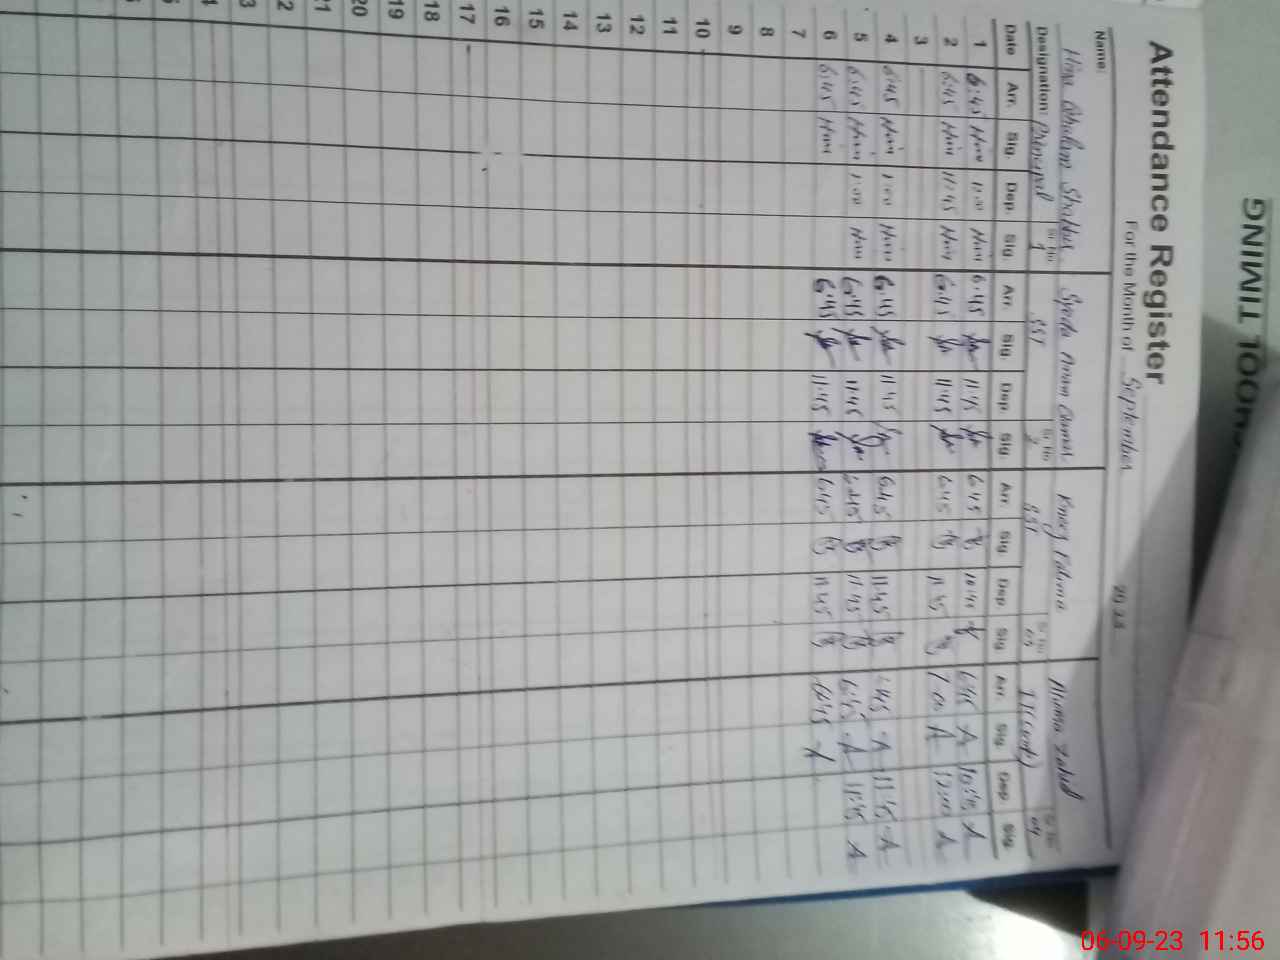 SCHOOL TIMING
Attendance Register
For the Month of September 2023
Name: Hina Ghulam Shabbir Syeda Anam Qamar Kneez Fatima Aliuma Zahid
Designation: Principal Sr. No 1 SST Sr. No 2 SST Sr. No 03 Sr. No 04
Date Arr. Sig. Dep. Sig. Arr. Sig. Dep. Sig. Arr. Sig. Dep. Sig. Arr. Sig. Dep. Sig.
1 6:45 Hina 12:00 Hina 6:45 11:45 6:45 10:45 6:45 A 10:45 A
2 6:45 Hina 11:45 Hina 6:45 11:45 6:45 11:45 7:00 A 12:00 A
3
4 6:45 Hina 1:00 Hina 6:45 11:45 6:45 11:45 6:45 A 11:45 A
5 6:45 Hina 1:00 Hina 6:45 11:45 6:45 11:45 6:45 A 11:45 A
6 6:45 Hina 6:45 11:45 6:45 11:45 6:45 A
7
8
9
10
11
12
13
14
15
16
17
18
19
20
21
22
23
06-09-23 11:56